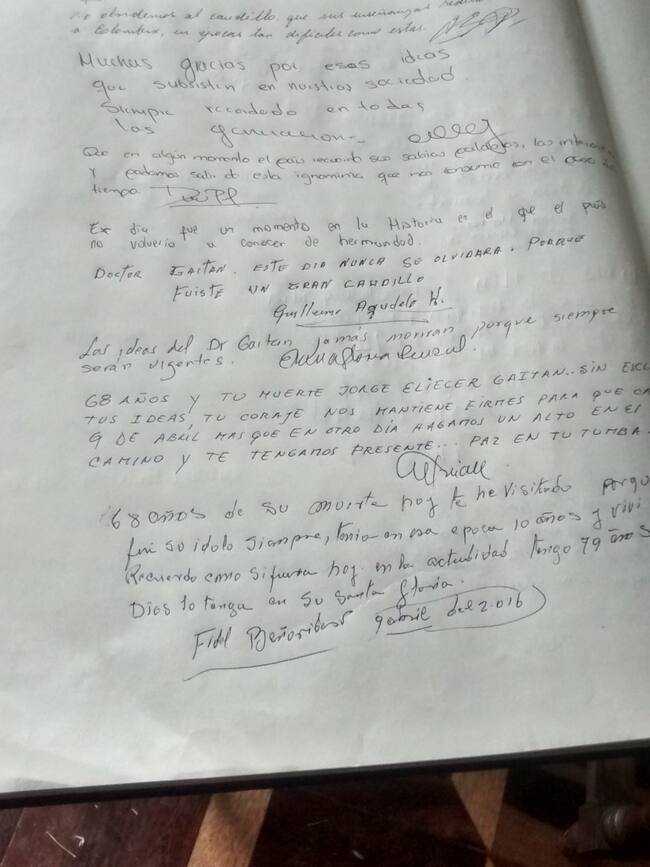 no olvidemos al caudillo, que sus enseñanzas
a Colombia, en epocas tan dificiles como estas.
Muchas gracias por esas ideas
que subsisten en nuestras sociedad.
Siempre recordado en todas
las
Que en algún momento el país recuerde sus sabias palabras, las
y podamos salir de esta ignominia que nos consume con el paso
tiempo
Ese dia fue un momento en la Historia en el que el país
no volveria a conocer de hermandad.
DOCTOR GAITAN. ESTE DIA NUNCA SE OLVIDARA. PORQUE
FUISTE UN GRAN CAUDILLO
Guillermo Agudelo H.
Las ideas del Dr Gaitan jamás moriran porque siempre
serán vigentes.
68 AÑOS Y TU MUERTE JORGE ELIECER GAITAN.. SIN ESCL
TUS IDEAS, TU CORAJE NOS MANTIENE FIRMES PARA QUE CA
9 DE ABRIL MAS QUE EN OTRO DÍA HAGAMOS UN ALTO EN EL
CAMINO Y TE TENGAMOS PRESENTE... PAZ EN TU TUMBA.
68 años de su muerte hoy te he visitado porqu
fui su idolo siempre, tenia en esa epoca 10 años y vivi
Recuerdo como si fuera hoy. en la actualidad tengo 79 años
Dios lo tenga en su Santa Gloria.
Fidel 9 abril del 2.016